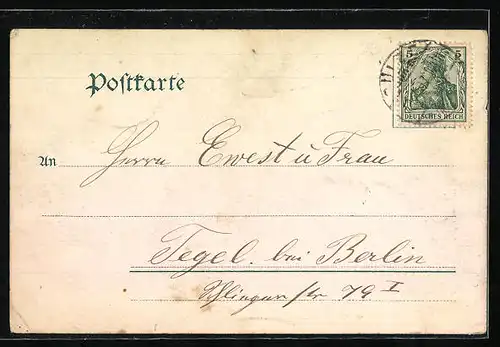 Postkarte
5 5
DEUTSCHES REICH
An Herrn Ewest u Frau
Tegel. bei Berlin
Schlieper str 79 I